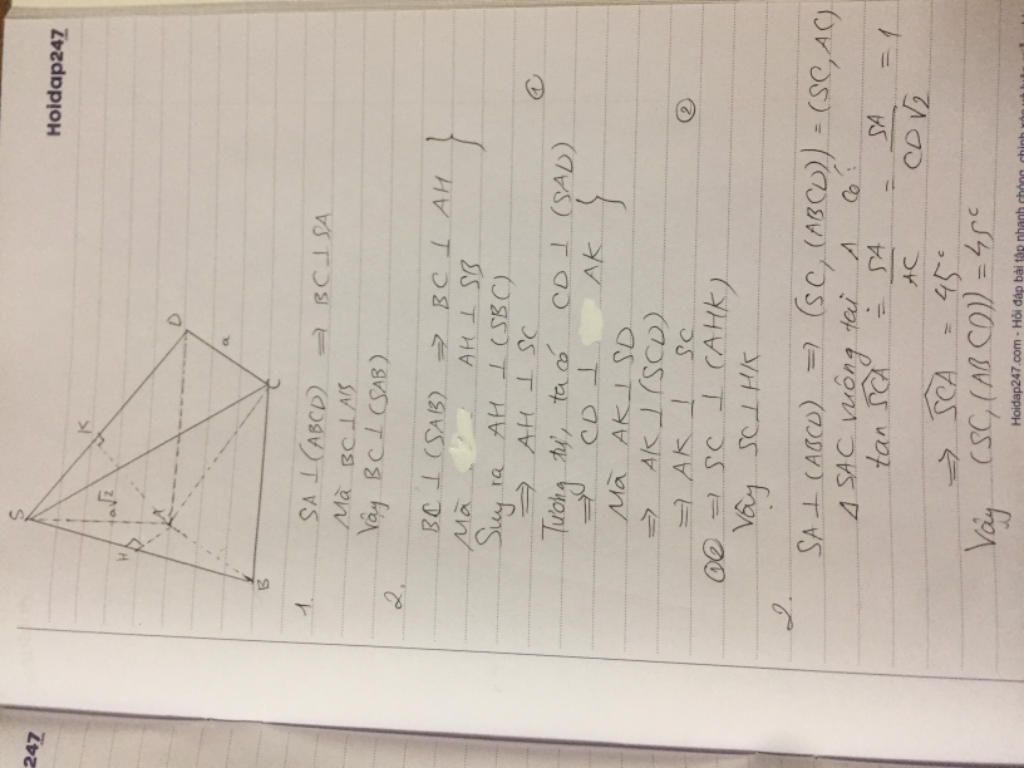 Hoidap247
S
H
a√2
K
A
D
a
B
C
1.
SA ⊥ (ABCD) ⇒ BC ⊥ SA
Mà BC ⊥ AB
Vậy BC ⊥ (SAB)
2.
BC ⊥ (SAB) ⇒ BC ⊥ AH }
Mà AH ⊥ SB
Suy ra AH ⊥ (SBC)
⇒ AH ⊥ SC ①
Tương tự, ta có CD ⊥ (SAD)
⇒ CD ⊥ AK }
Mà AK ⊥ SD
⇒ AK ⊥ (SCD)
⇒ AK ⊥ SC ②
①② ⇒ SC ⊥ (AHK)
Vậy SC ⊥ HK
2.
SA ⊥ (ABCD) ⇒ (SC, (ABCD)) = (SC, AC)
Δ SAC vuông tại A có:
tan SCA = SA/AC = SA/CD√2 = 1
⇒ SCA = 45°
Vậy (SC, (ABCD)) = 45°
Hoidap247.com - Hỏi đáp bài tập nhanh chóng, chính xác
247